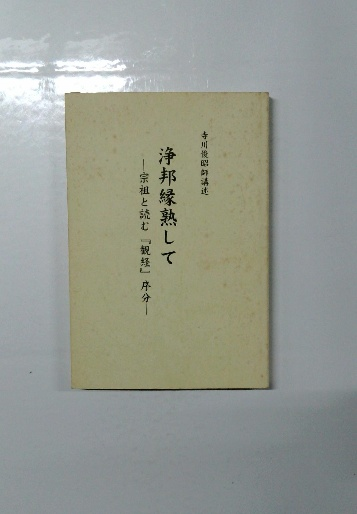 寺川俊昭師講述
浄邦縁熟して
―宗祖と読む『観経』序分―